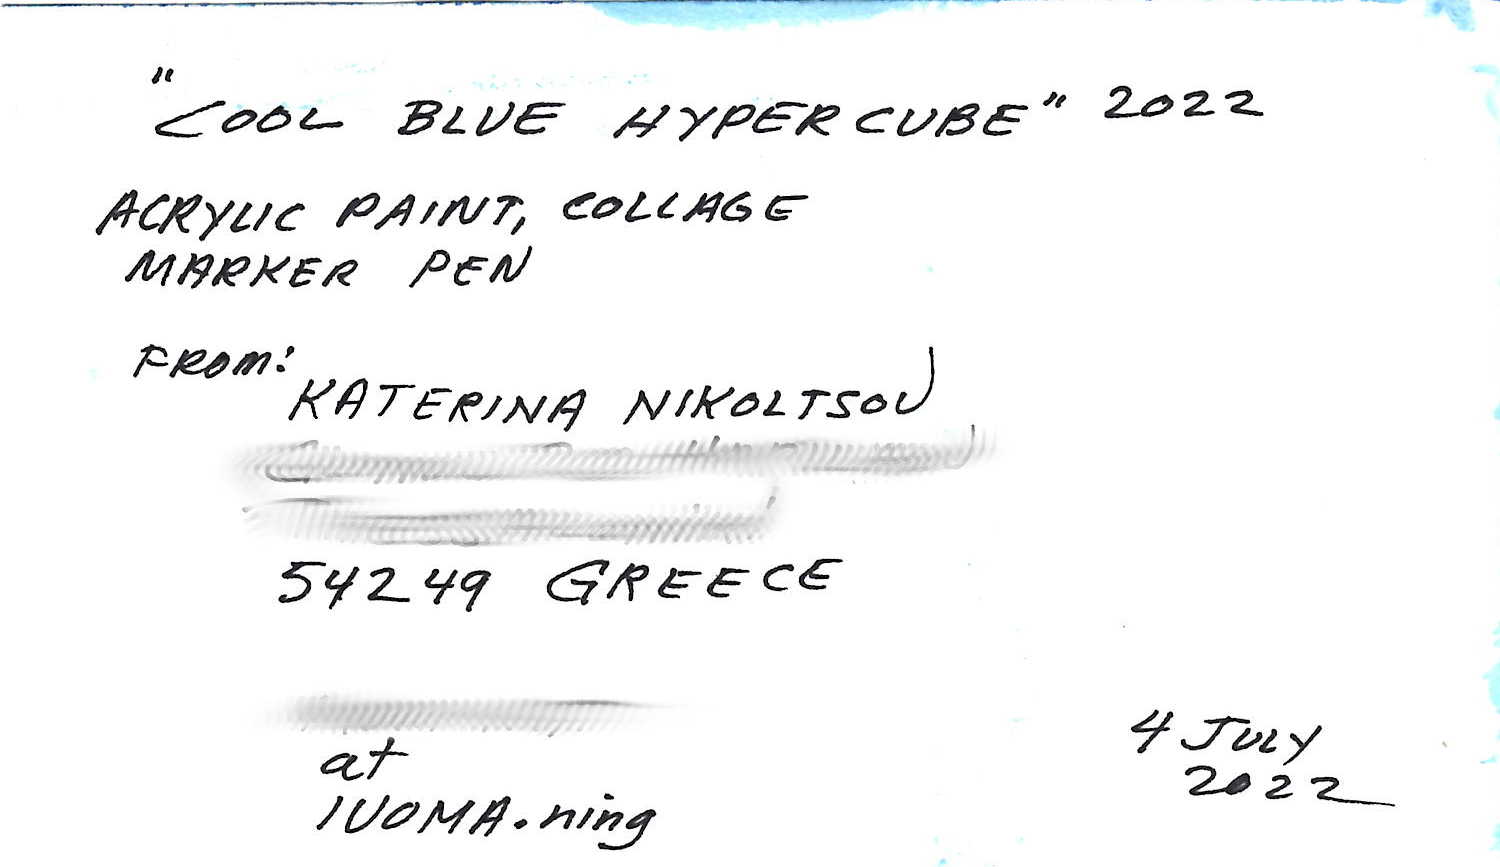 "COOL BLUE HYPERCUBE" 2022
ACRYLIC PAINT, COLLAGE
MARKER PEN
FROM:
KATERINA NIKOLTSOU
54249 GREECE
at
IUOMA.ning
4 JULY
2022